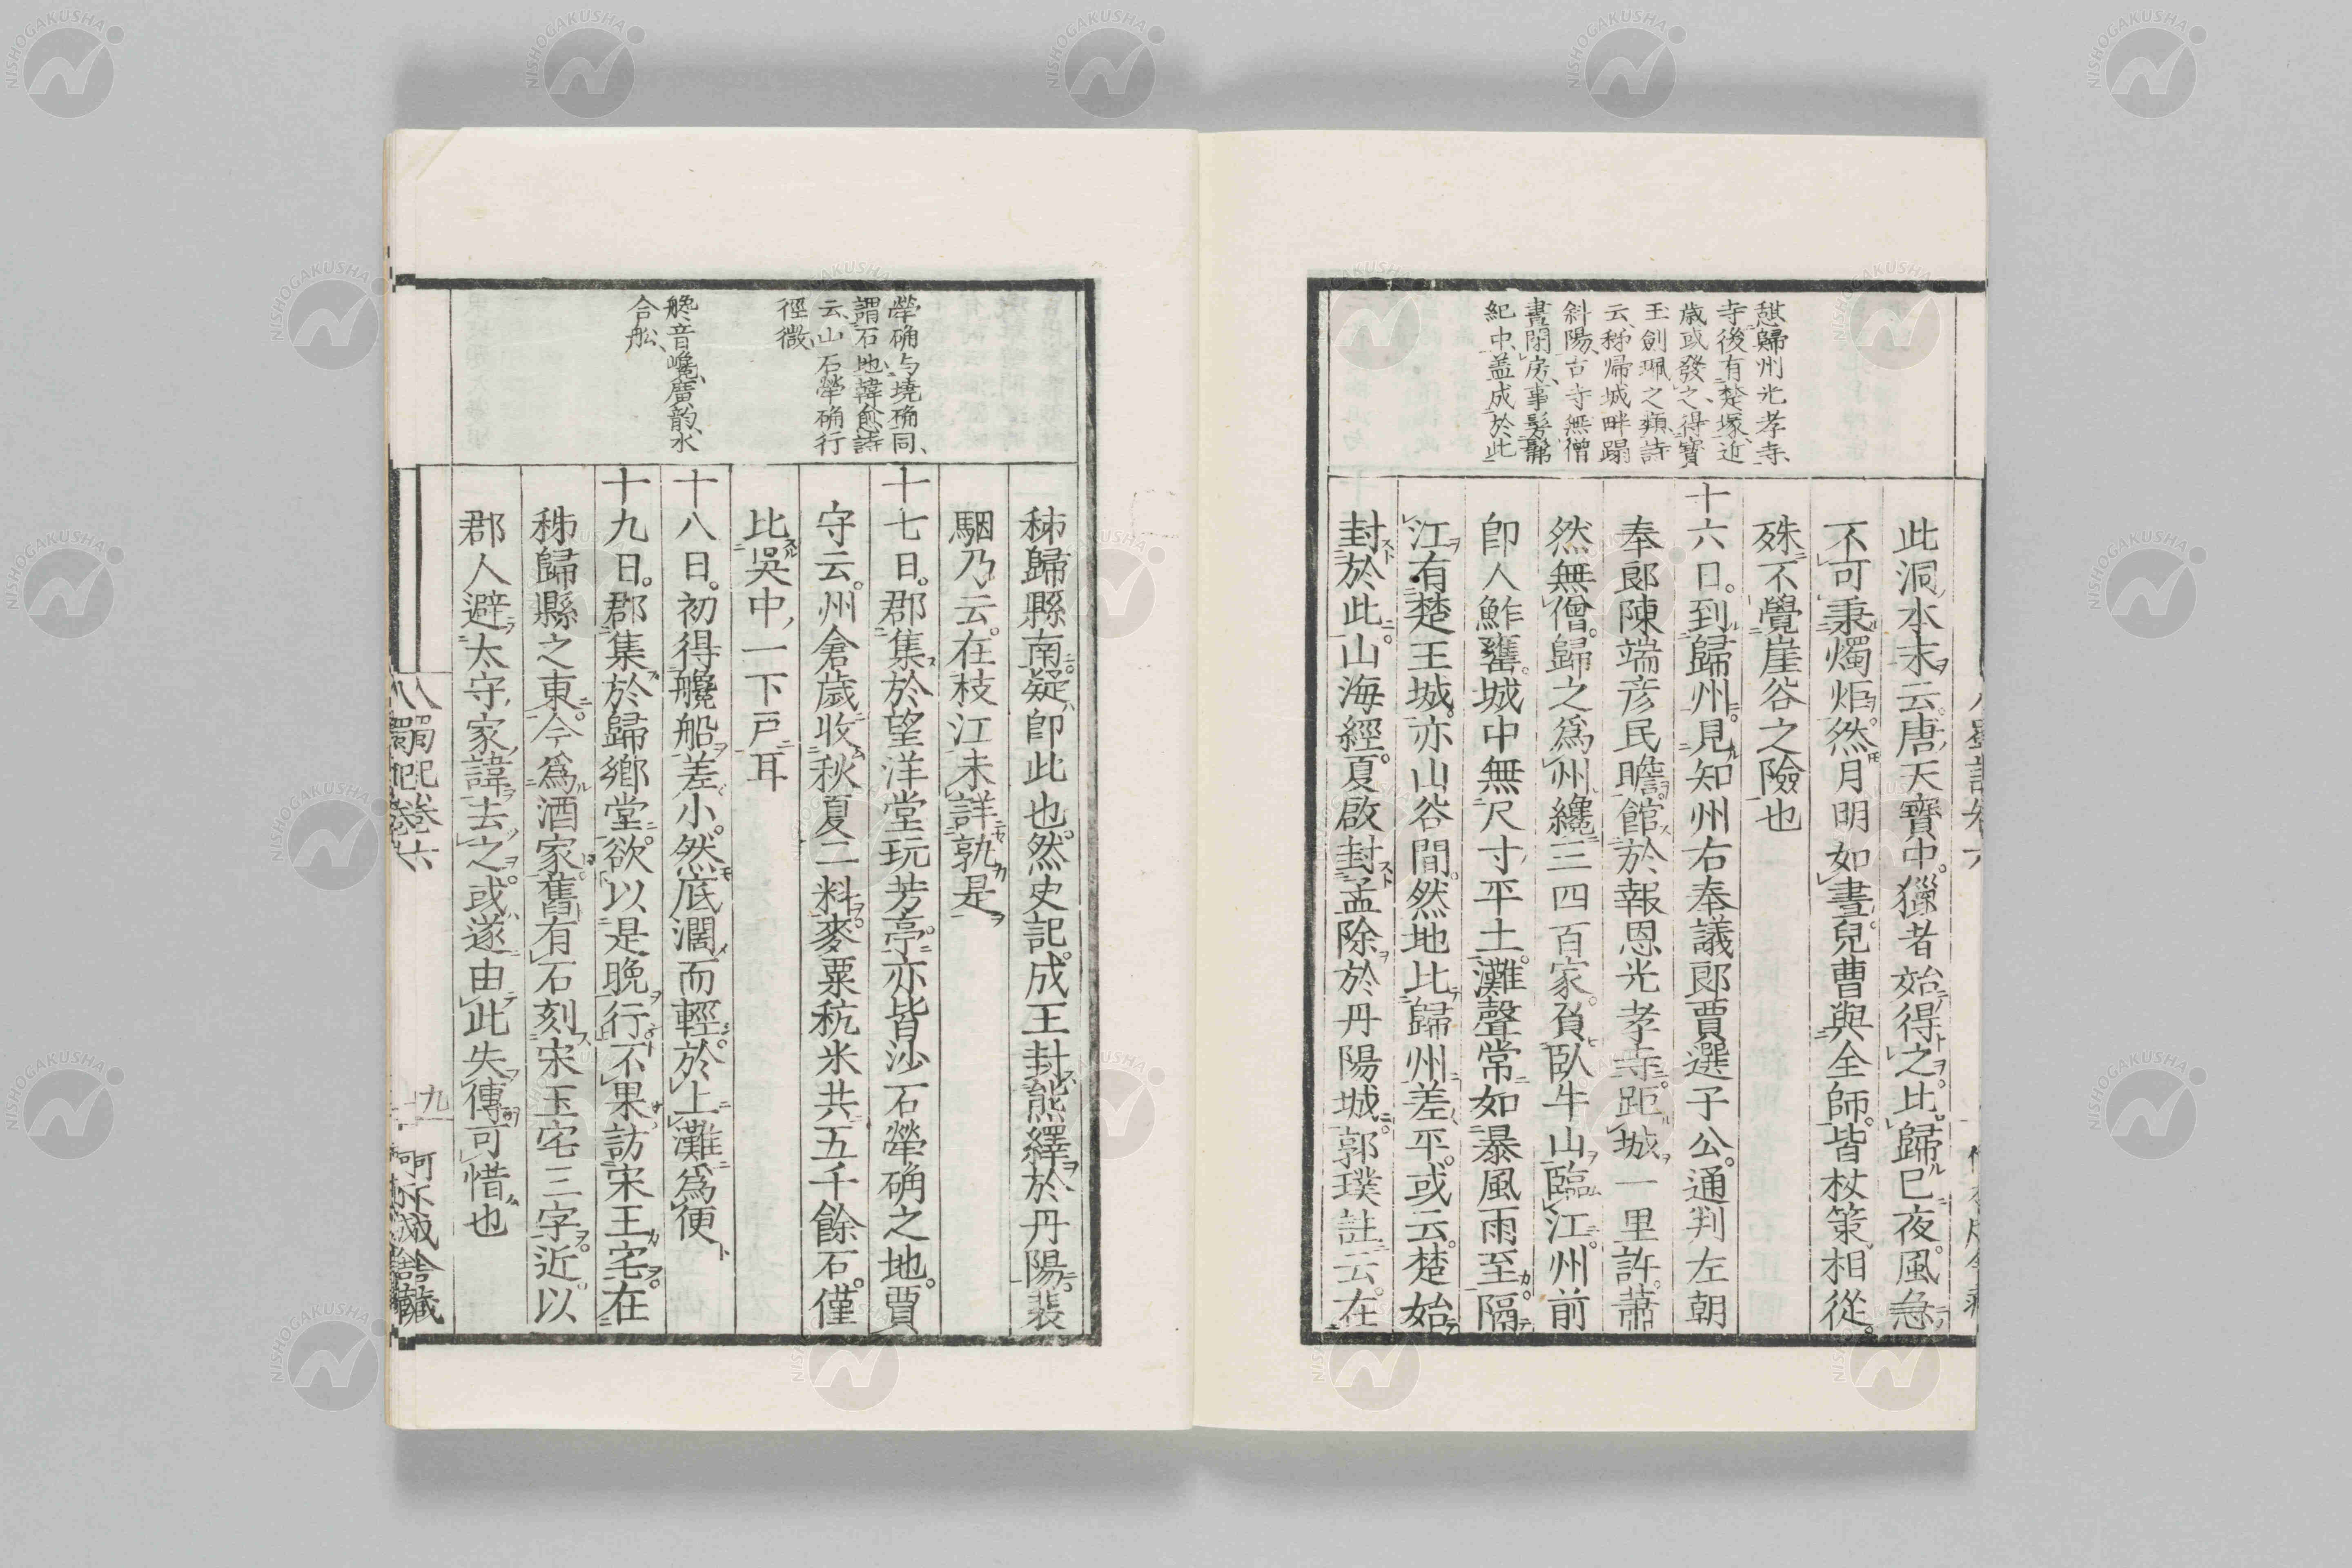 憇歸州光孝寺、
寺後有楚塚、近
歳或發之、得寶
玉劍珮之類、詩
云、秭帰城畔蹋
斜陽、古寺無僧
晝閉房、事髣髴
紀中、盖成於此
此洞、水末云、唐天寶中。獵者始得之。比歸已夜。風急
不可秉燭炬。然月明如晝。兒曹與全師。皆杖策相從。
殊不覺崖谷之險也
十六日。到歸州。見知州右奉議郎賈選子公。通判左朝
奉郎陳端彦民瞻。館於報恩光孝寺。距城一里許。蕭
然無僧。歸之爲州。纔三四百家。負臥牛山。臨江。州前
即人鮓甕。城中無尺寸平土。灘聲常如暴風雨至。隔
江有楚王城。亦山谷間。然地比歸州差平。或云。楚始
封於此。山海經。夏啟封孟除於丹陽城。郭璞註云。在
犖确与墝确同、
謂石地、韓愈詩
云、山石犖确行
徑微、
艬、音巉、廣韵、水
合舩、
秭歸縣南。疑即此也。然史記。成王封熊繹於丹陽。裴
駰乃云。在枝江。未詳孰是
十七日。郡集於望洋堂玩芳亭。亦皆沙石犖确之地。賈
守云。州倉歲收秋夏二料。麥粟秔米共五千餘石。僅
比吳中一下戸耳
十八日。初得艬船。差小。然底濶而輕。於上灘爲便
十九日。郡集於歸鄉堂。欲以是晚行。不果。訪宋玉宅。在
秭歸縣之東。今爲酒家。舊有石刻宋玉宅三字。近以
郡人避太守家諱去之。或遂由此失傳。可惜也
蜀記卷六
九